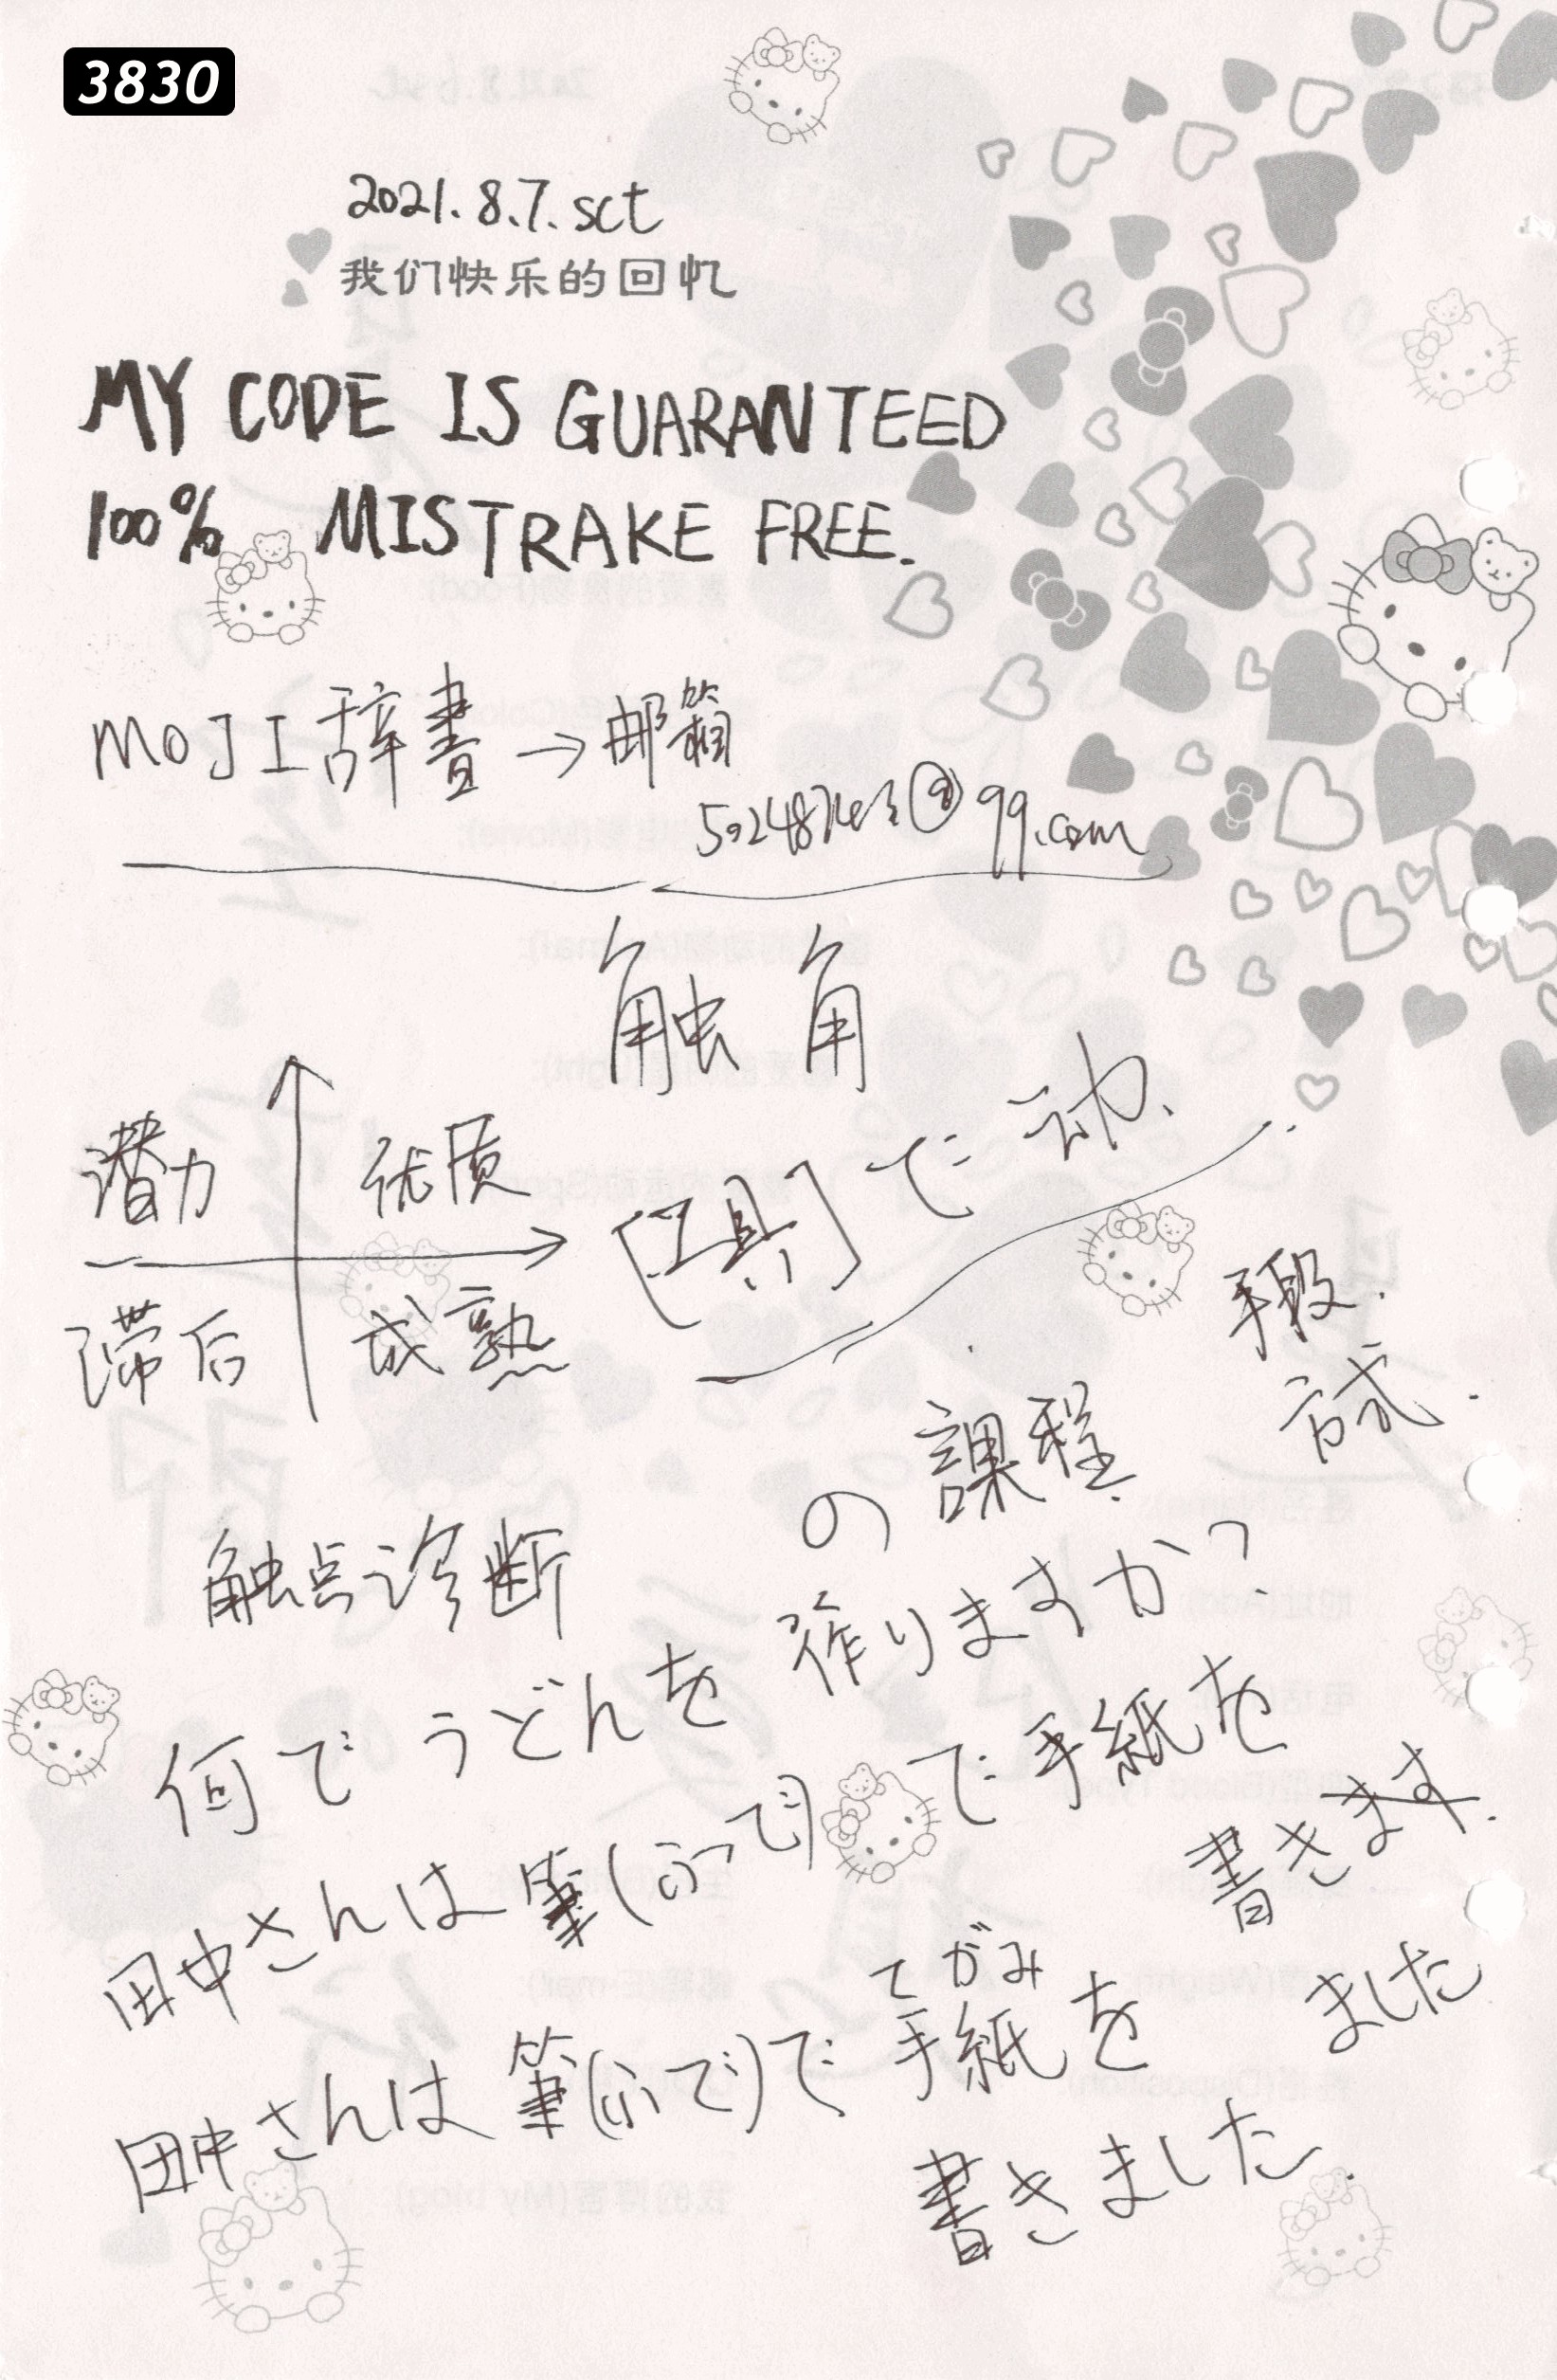 3830
2021.8.7. sct
我们快乐的回忆
MY CODE IS GUARANTEED
100% MISTRAKE FREE.
MOJI辞書→邮箱
@qq.com
触角
潜力 优质
滞后 成熟
[工具]で 动.
手段.
方式.
の 課程.
触点诊断
何で うどんを 作りますか?
田中さんは 筆(ふで)で 手紙を
書きます.
ました
てがみ
田中さんは 筆(ふで)で 手紙 を
書きました.